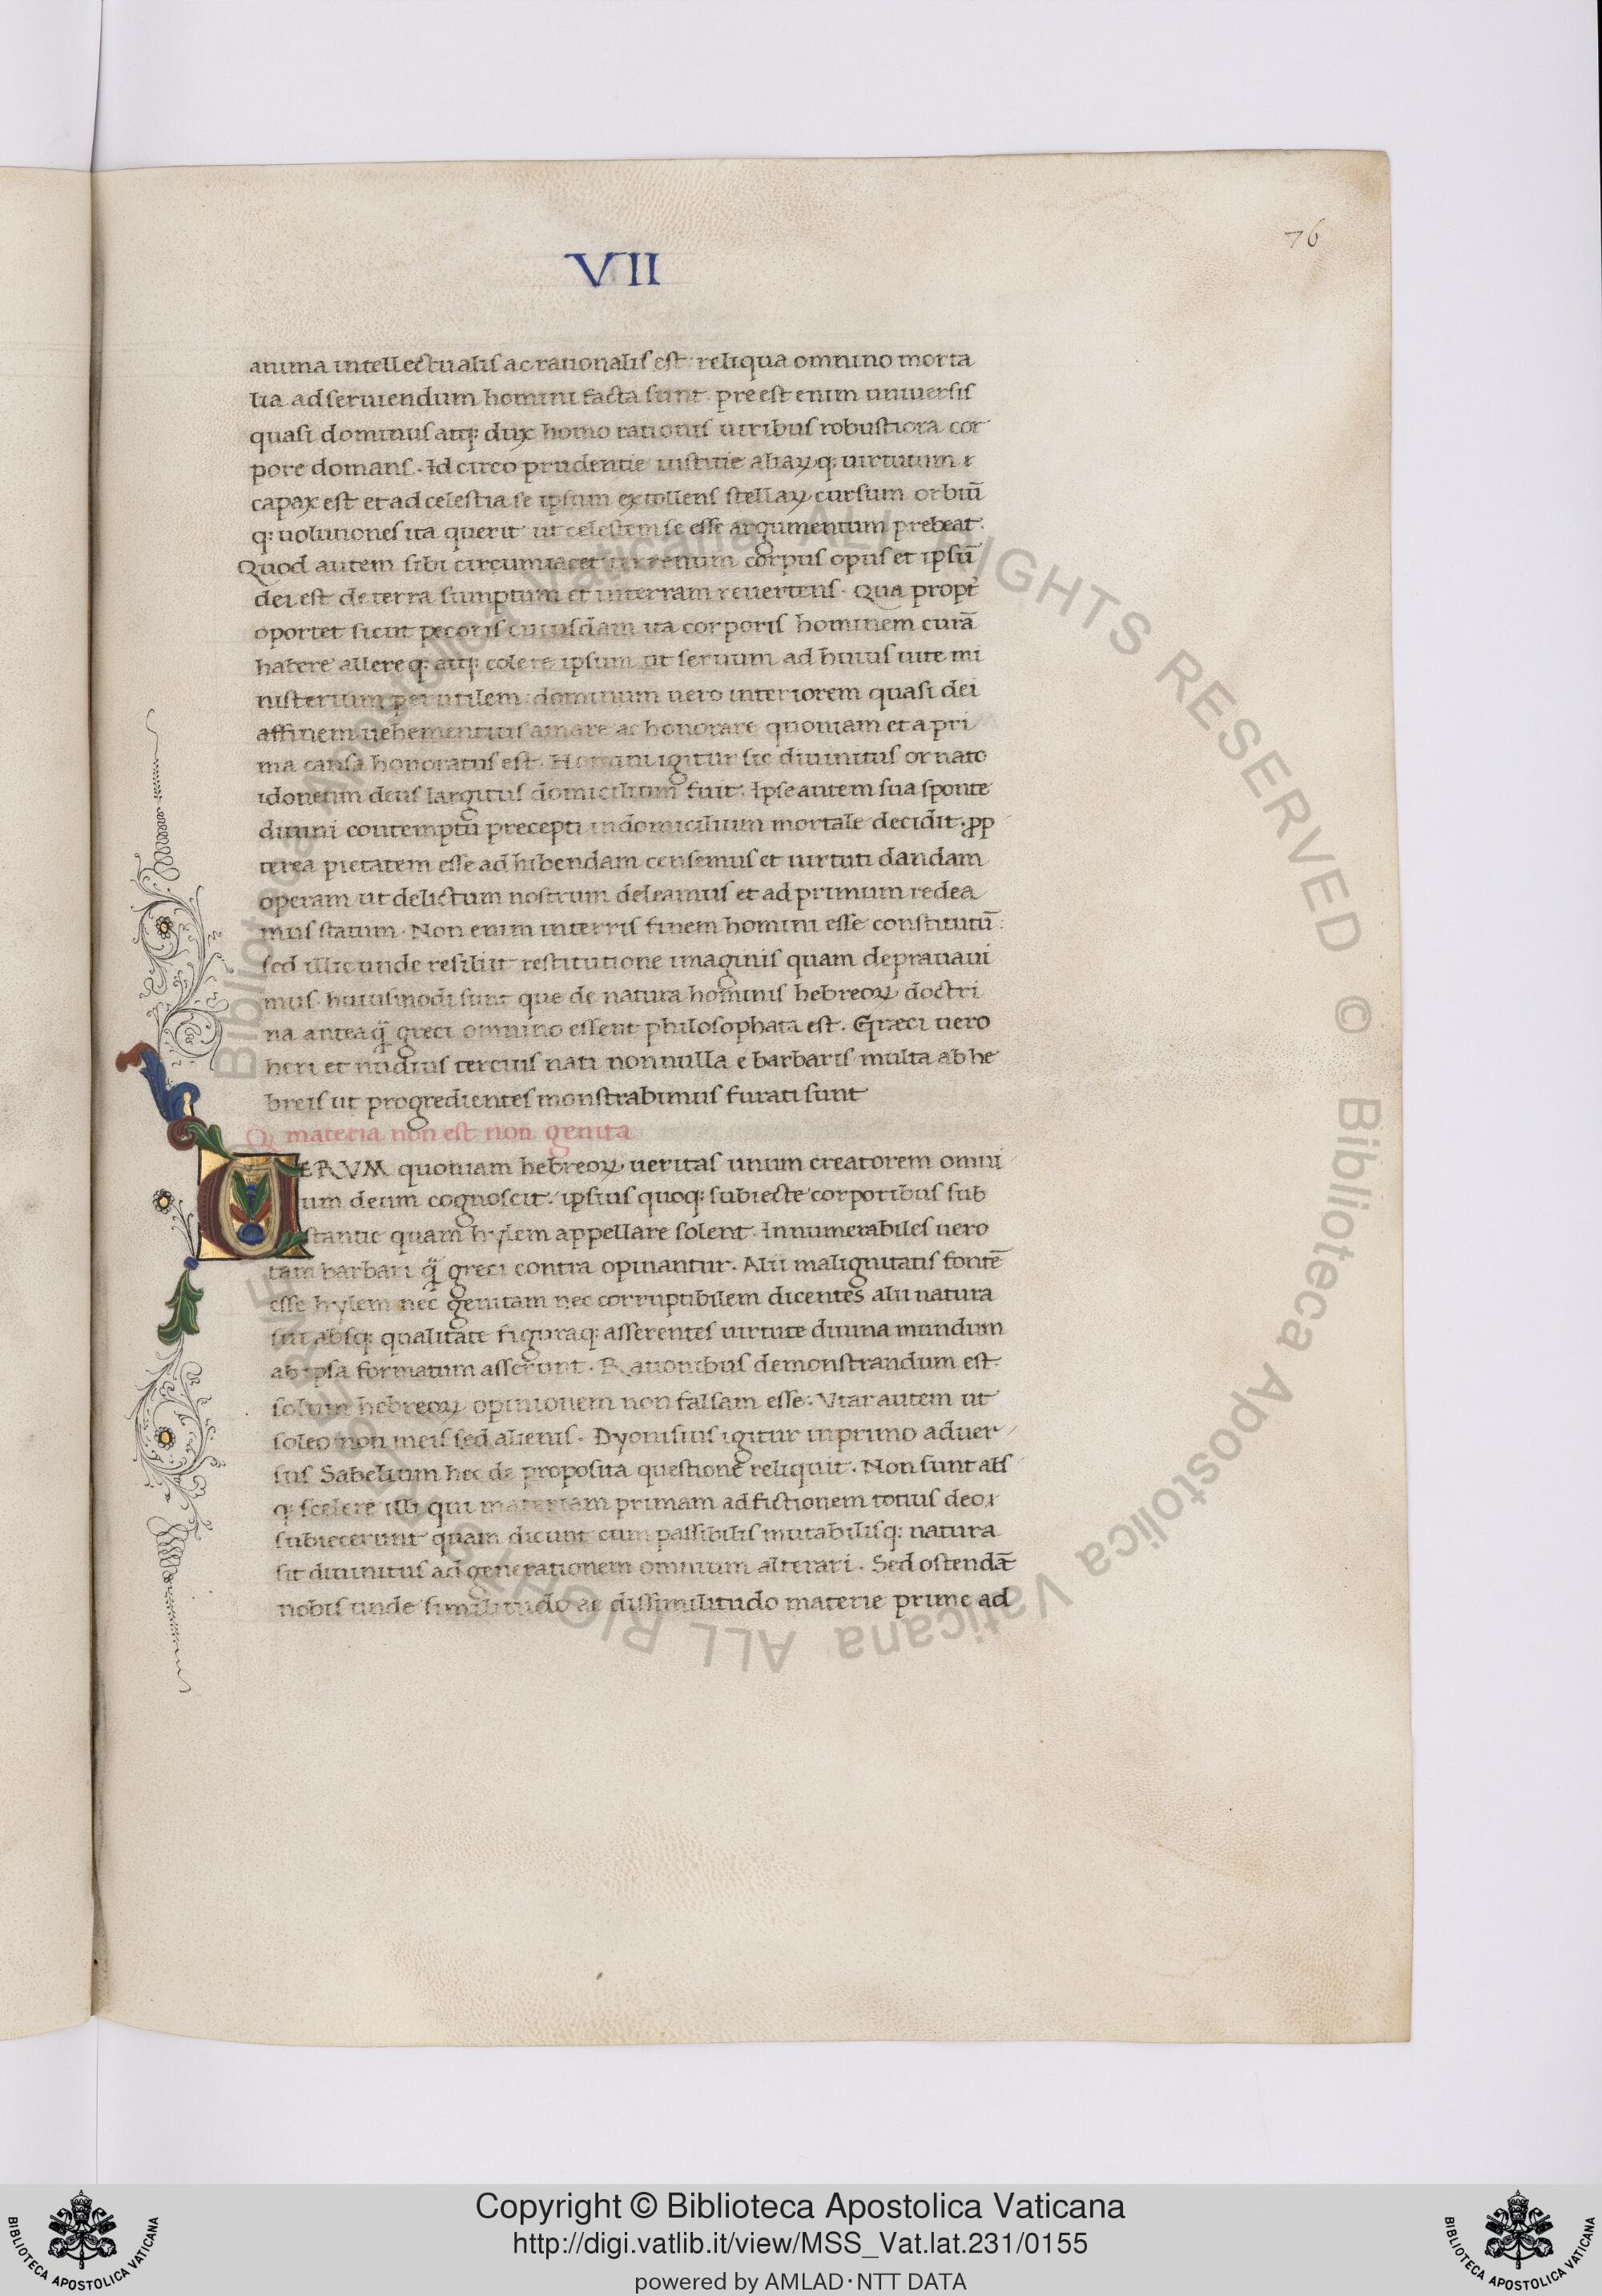 76
VII
anima intellectualis ac rationalis est reliqua omnino morta
lia ad seruiendum homini facta sunt. preest enim uniuersis
quasi dominus atq; dux homo rationis uiribus robustiora cor
pore domans. Id circo prudentie iustitie aliaꝝq; uirtutum
capax est et ad celestia se ipsum extollens stellaꝝ cursum orbiū
q; uolutiones ita querit ut celestem se esse argumentum prebeat.
Quod autem sibi circumiacet terrenum corpus opus et ipsū
dei est de terra sumptum et in terram reuertens. Qua propt̄
oportet sicut pecoris cuiusdam ita corporis hominem curā
habere allere q; atq; colere ipsum ut seruum ad huius uite mi
nisterium per utilem: dominum uero interiorem quasi dei
affinem uehementius amare ac honorare quoniam et a pri
ma causa honoratus est. Homini igitur sic diuinitus ornato
idoneum deus largitus domicilium fuit. Ipse autem sua sponte
diuini contemptū precepti in domicilium mortale decidit. ꝓp
terea pietatem esse adhibendam censemus et uirtuti dandam
operam ut delictum nostrum deleamus et ad primum redea
mus statum. Non enim in terris finem homini esse constitutū:
sed illic unde resiliit restitutione imaginis quam deprauaui
mus. huiusmodi sunt que de natura hominis hebreoꝝ doctri
na antea q̃ greci omnino essent philosophata est. Græci uero
heri et nudius tercius nati non nulla e barbaris multa ab he
breis ut progredientes monstrabimus furati sunt
Q materia non est non genita
UERVM quoniam hebreoꝝ ueritas unum creatorem omni
um deum cognoscit. ipsius quoq; subiecte corporibus sub
stantie quam hylem appellare solent. Innumerabiles uero
tam barbari q̃ greci contra opinantur. Alii malignitatis fontē
esse hylem nec genitam nec corruptibilem dicentes alii natura
sui absq; qualitate figuraq; asserentes uirtute diuina mundum
ab ipsa formatum asserunt. Rationibus demonstrandum est.
solum hebreoꝝ opinionem non falsam esse. Vtar autem ut
soleo non meis sed alienis. Dyonisius igitur in primo aduer
sus Sabelium hec de proposita questione reliquit. Non sunt abs
q; scelere illi qui materiam primam ad fictionem totius deo
subiecerunt quam dicunt cum passibilis mutabilisq; natura
sit diuinitus ad generationem omnium alterari. Sed ostendāt
nobis unde similitudo ac dissimilitudo materie prime ad
Biblioteca Apostolica Vaticana ALL RIGHTS RESERVED © Biblioteca Apostolica Vaticana ALL RIGHTS RESERVED
Copyright © Biblioteca Apostolica Vaticana
http://digi.vatlib.it/view/MSS_Vat.lat.231/0155
powered by AMLAD·NTT DATA
BIBLIOTECA APOSTOLICA VATICANA
BIBLIOTECA APOSTOLICA VATICANA